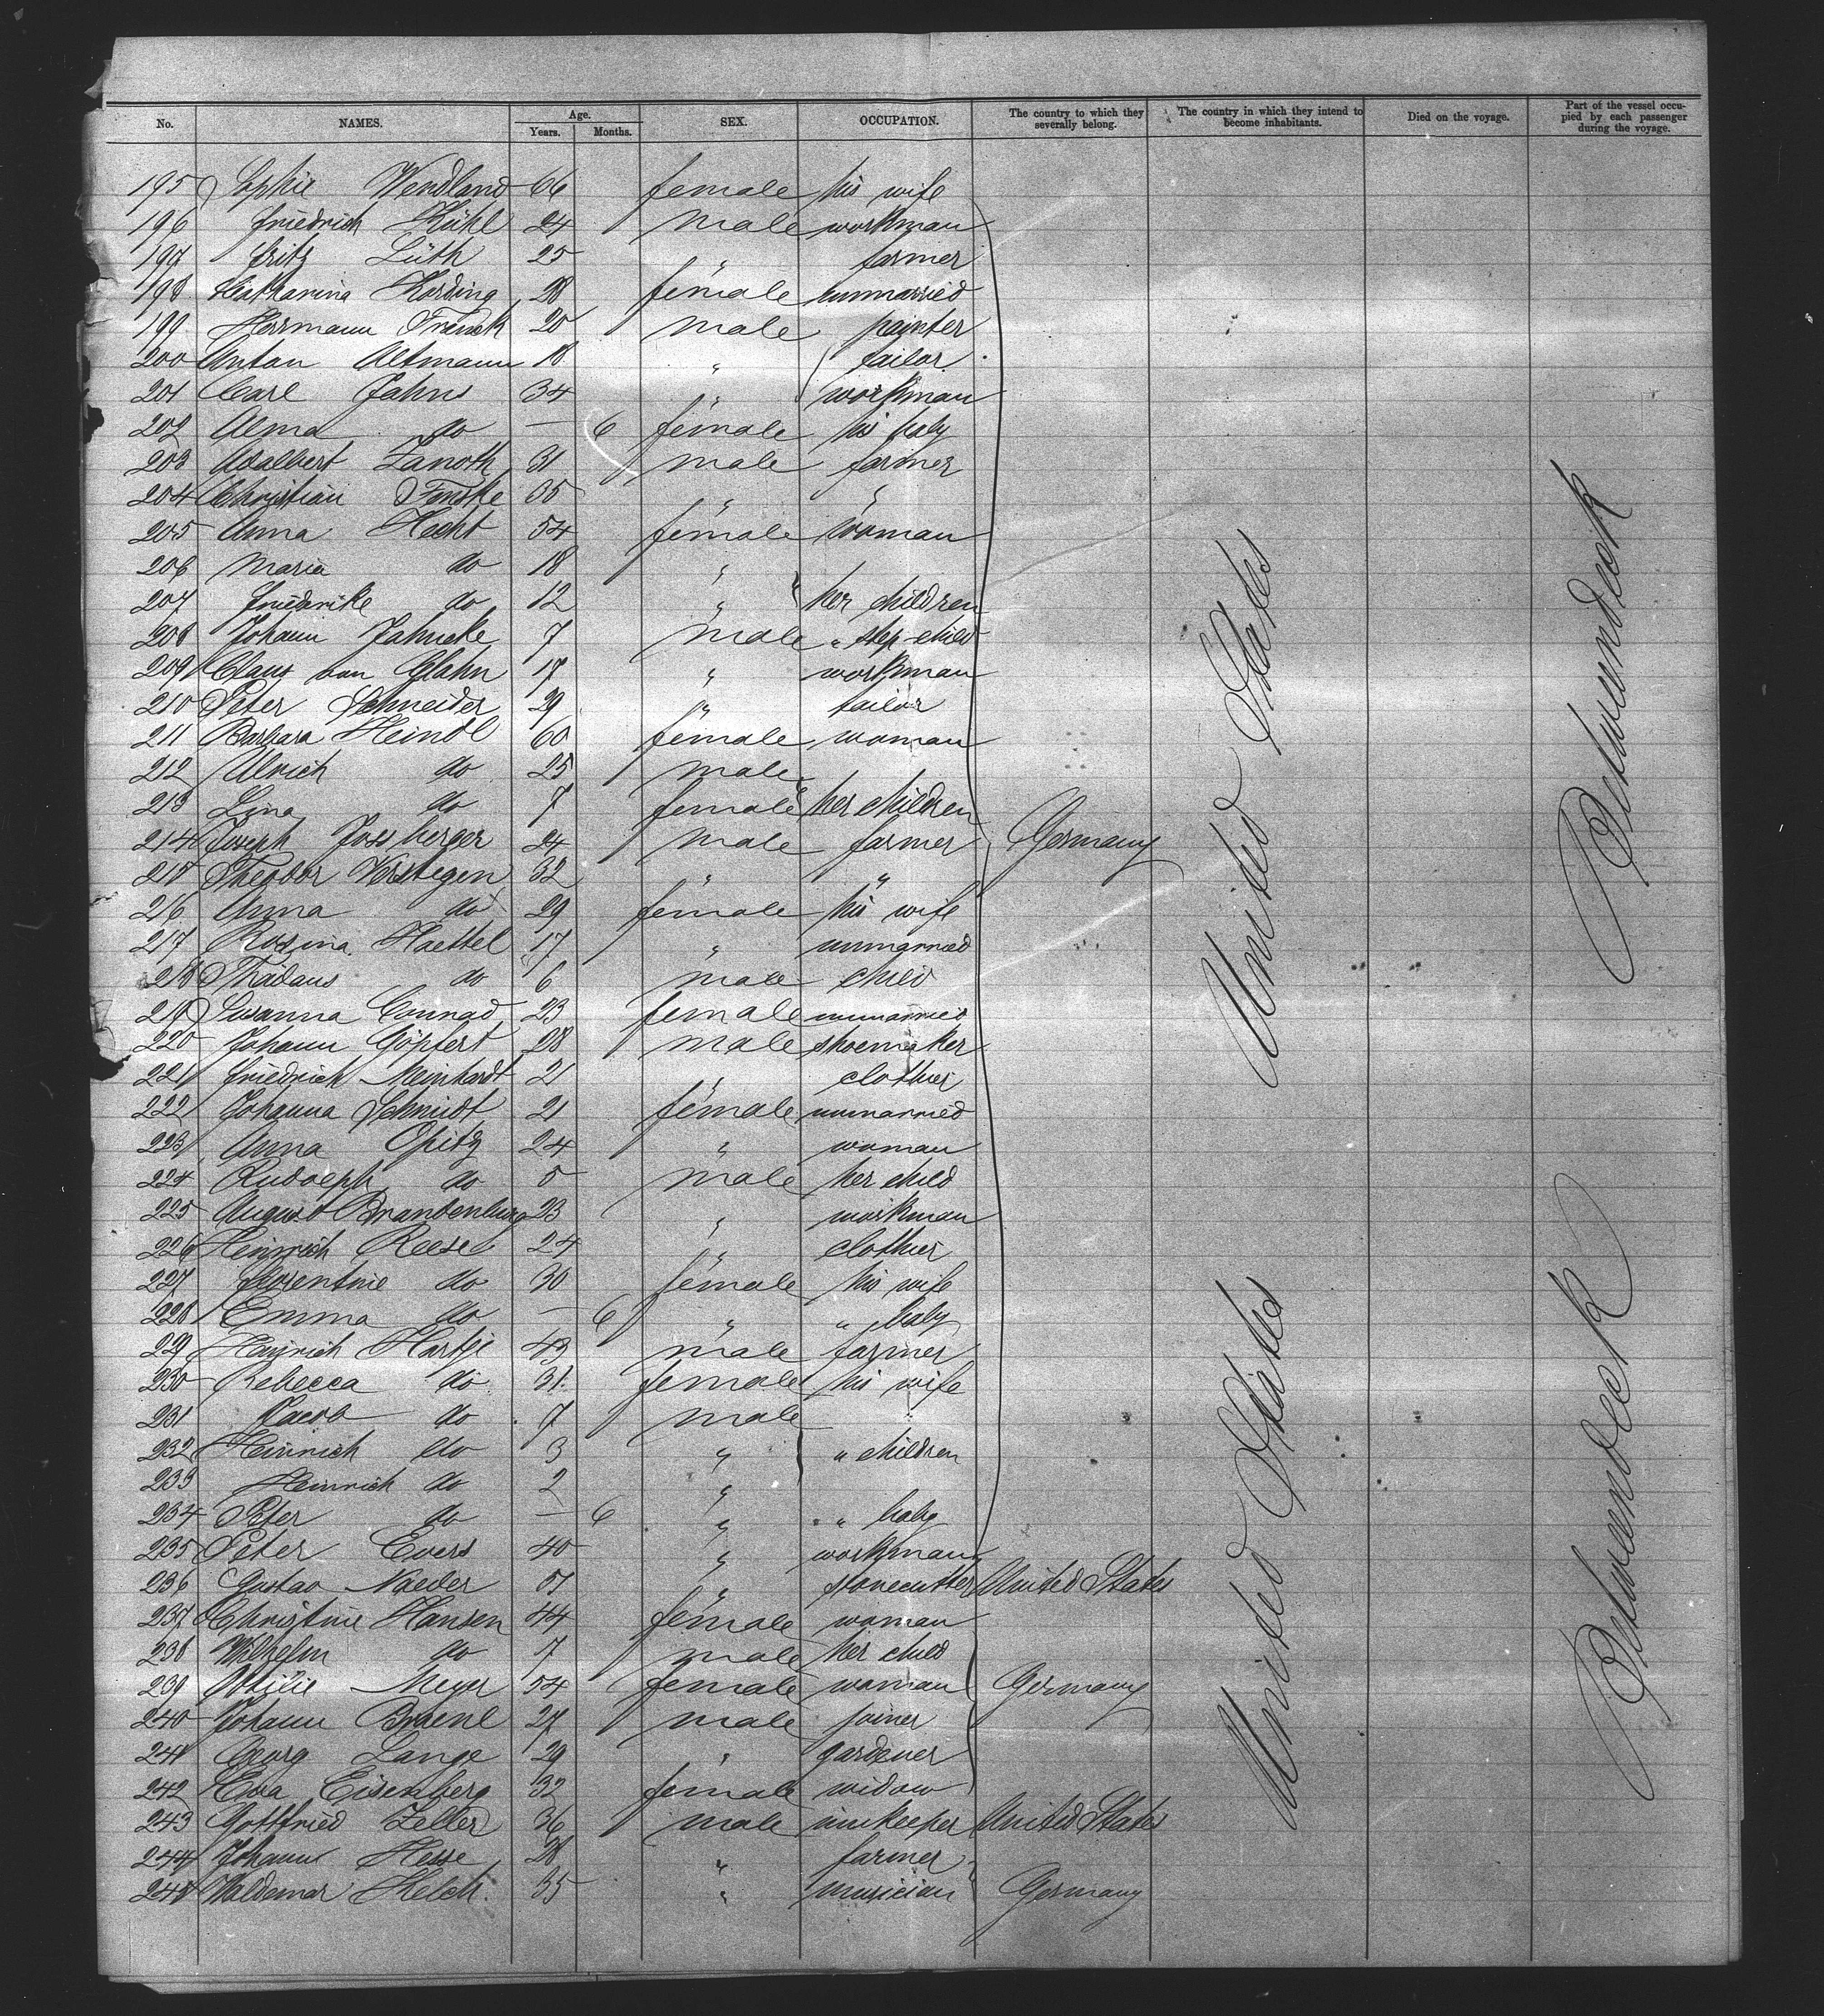 No. NAMES. Age. Years. Months. SEX. OCCUPATION. The country to which they severally belong. The country in which they intend to become inhabitants. Died on the voyage. Part of the vessel occupied by each passenger during the voyage.
195 Sophie Wendland 66 female his wife
196 Friedrich Kühl 24 male workman
197 Fritz Lüth 25 " farmer
198 Catharina Harding 28 female unmarried
199 Herrmann Frenck 20 male painter
200 Anton Altmann 18 " tailor
201 Carl Jahns 34 " workman
202 Alma do — 6 female his baby
203 Adalbert Zanoth 31 male farmer
204 Christian Fenske 35 " "
205 Anna Hecht 54 female woman
206 Maria do 18 "
207 Friederike do 12 " her children
208 Johann Jahncke 7 male " step-child
209 Claus van Glahn 17 " workman
210 Peter Schneider 29 " tailor
211 Barbara Heindl 60 female woman
212 Ulrich do 25 male
213 Lina do 7 female her children
214 Joseph Jossberger 24 male farmer Germany
215 Theodor Verstegen 32 " "
216 Anna do 29 female his wife
217 Rosina Haettel 17 " unmarried
218 Thadaus do 6 male child
219 Susanna Conrad 23 female unmarried
220 Johann Göpfert 28 male shoemaker
221 Friedrich Meinhardt 21 " clothier
222 Johanna Schmidt 21 female unmarried
223 Anna Opitz 24 " woman
224 Rudolph do 5 male her child
225 August Brandenburg 23 " workman
226 Heinrich Reese 24 " clothier
227 Florentine do 30 female his wife
228 Emma do — 6 " " baby
229 Heinrich Hartje 43 male farmer
230 Rebecca do 31 female his wife
231 Jacob do 7 male
232 Heinrich do 3 " " children
233 Heinrich do 2 "
234 Peter do — 6 " " baby
235 Peter Evers 40 " workman
236 Gustav Naeder 51 " stonecutter United States
237 Christine Hansen 44 female woman
238 Wilhelm do 7 male her child
239 Ottilie Meyer 54 female woman Germany
240 Johann Braenl 27 male joiner
241 Georg Lange 29 " gardener
242 Eva Eisenberg 32 female widow
243 Gottfried Zeller 36 male innkeeper United States
244 Johann Hesse 28 " farmer
245 Waldemar Kelch 35 " musician Germany
United States
United States
Betweendeck
Betweendeck